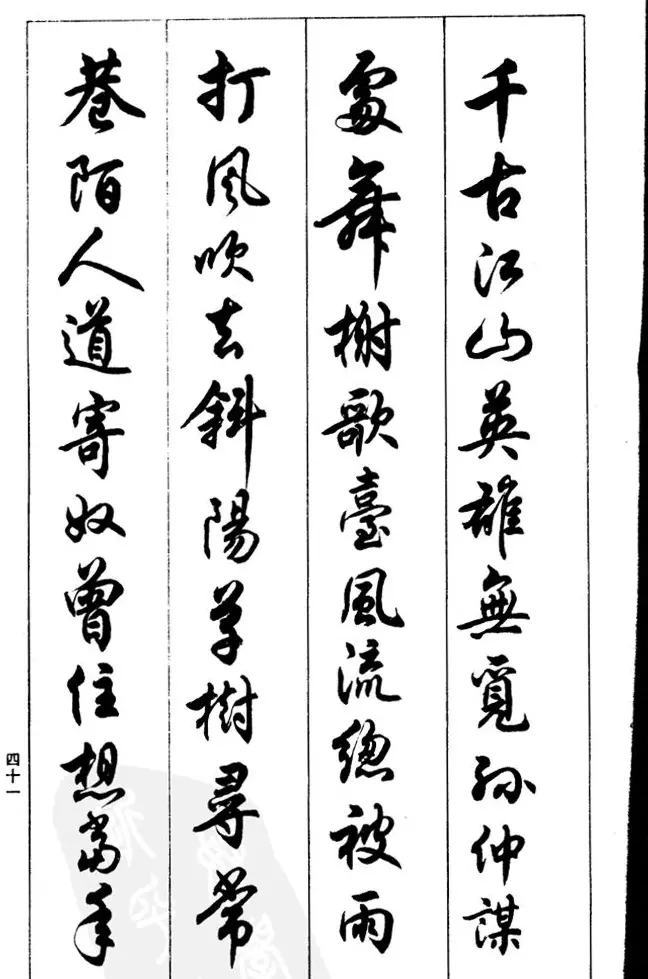 千古江山英雄無覓孫仲謀
處舞榭歌臺風流總被雨
打風吹去斜陽草樹尋常
巷陌人道寄奴曾住想當年
四十一